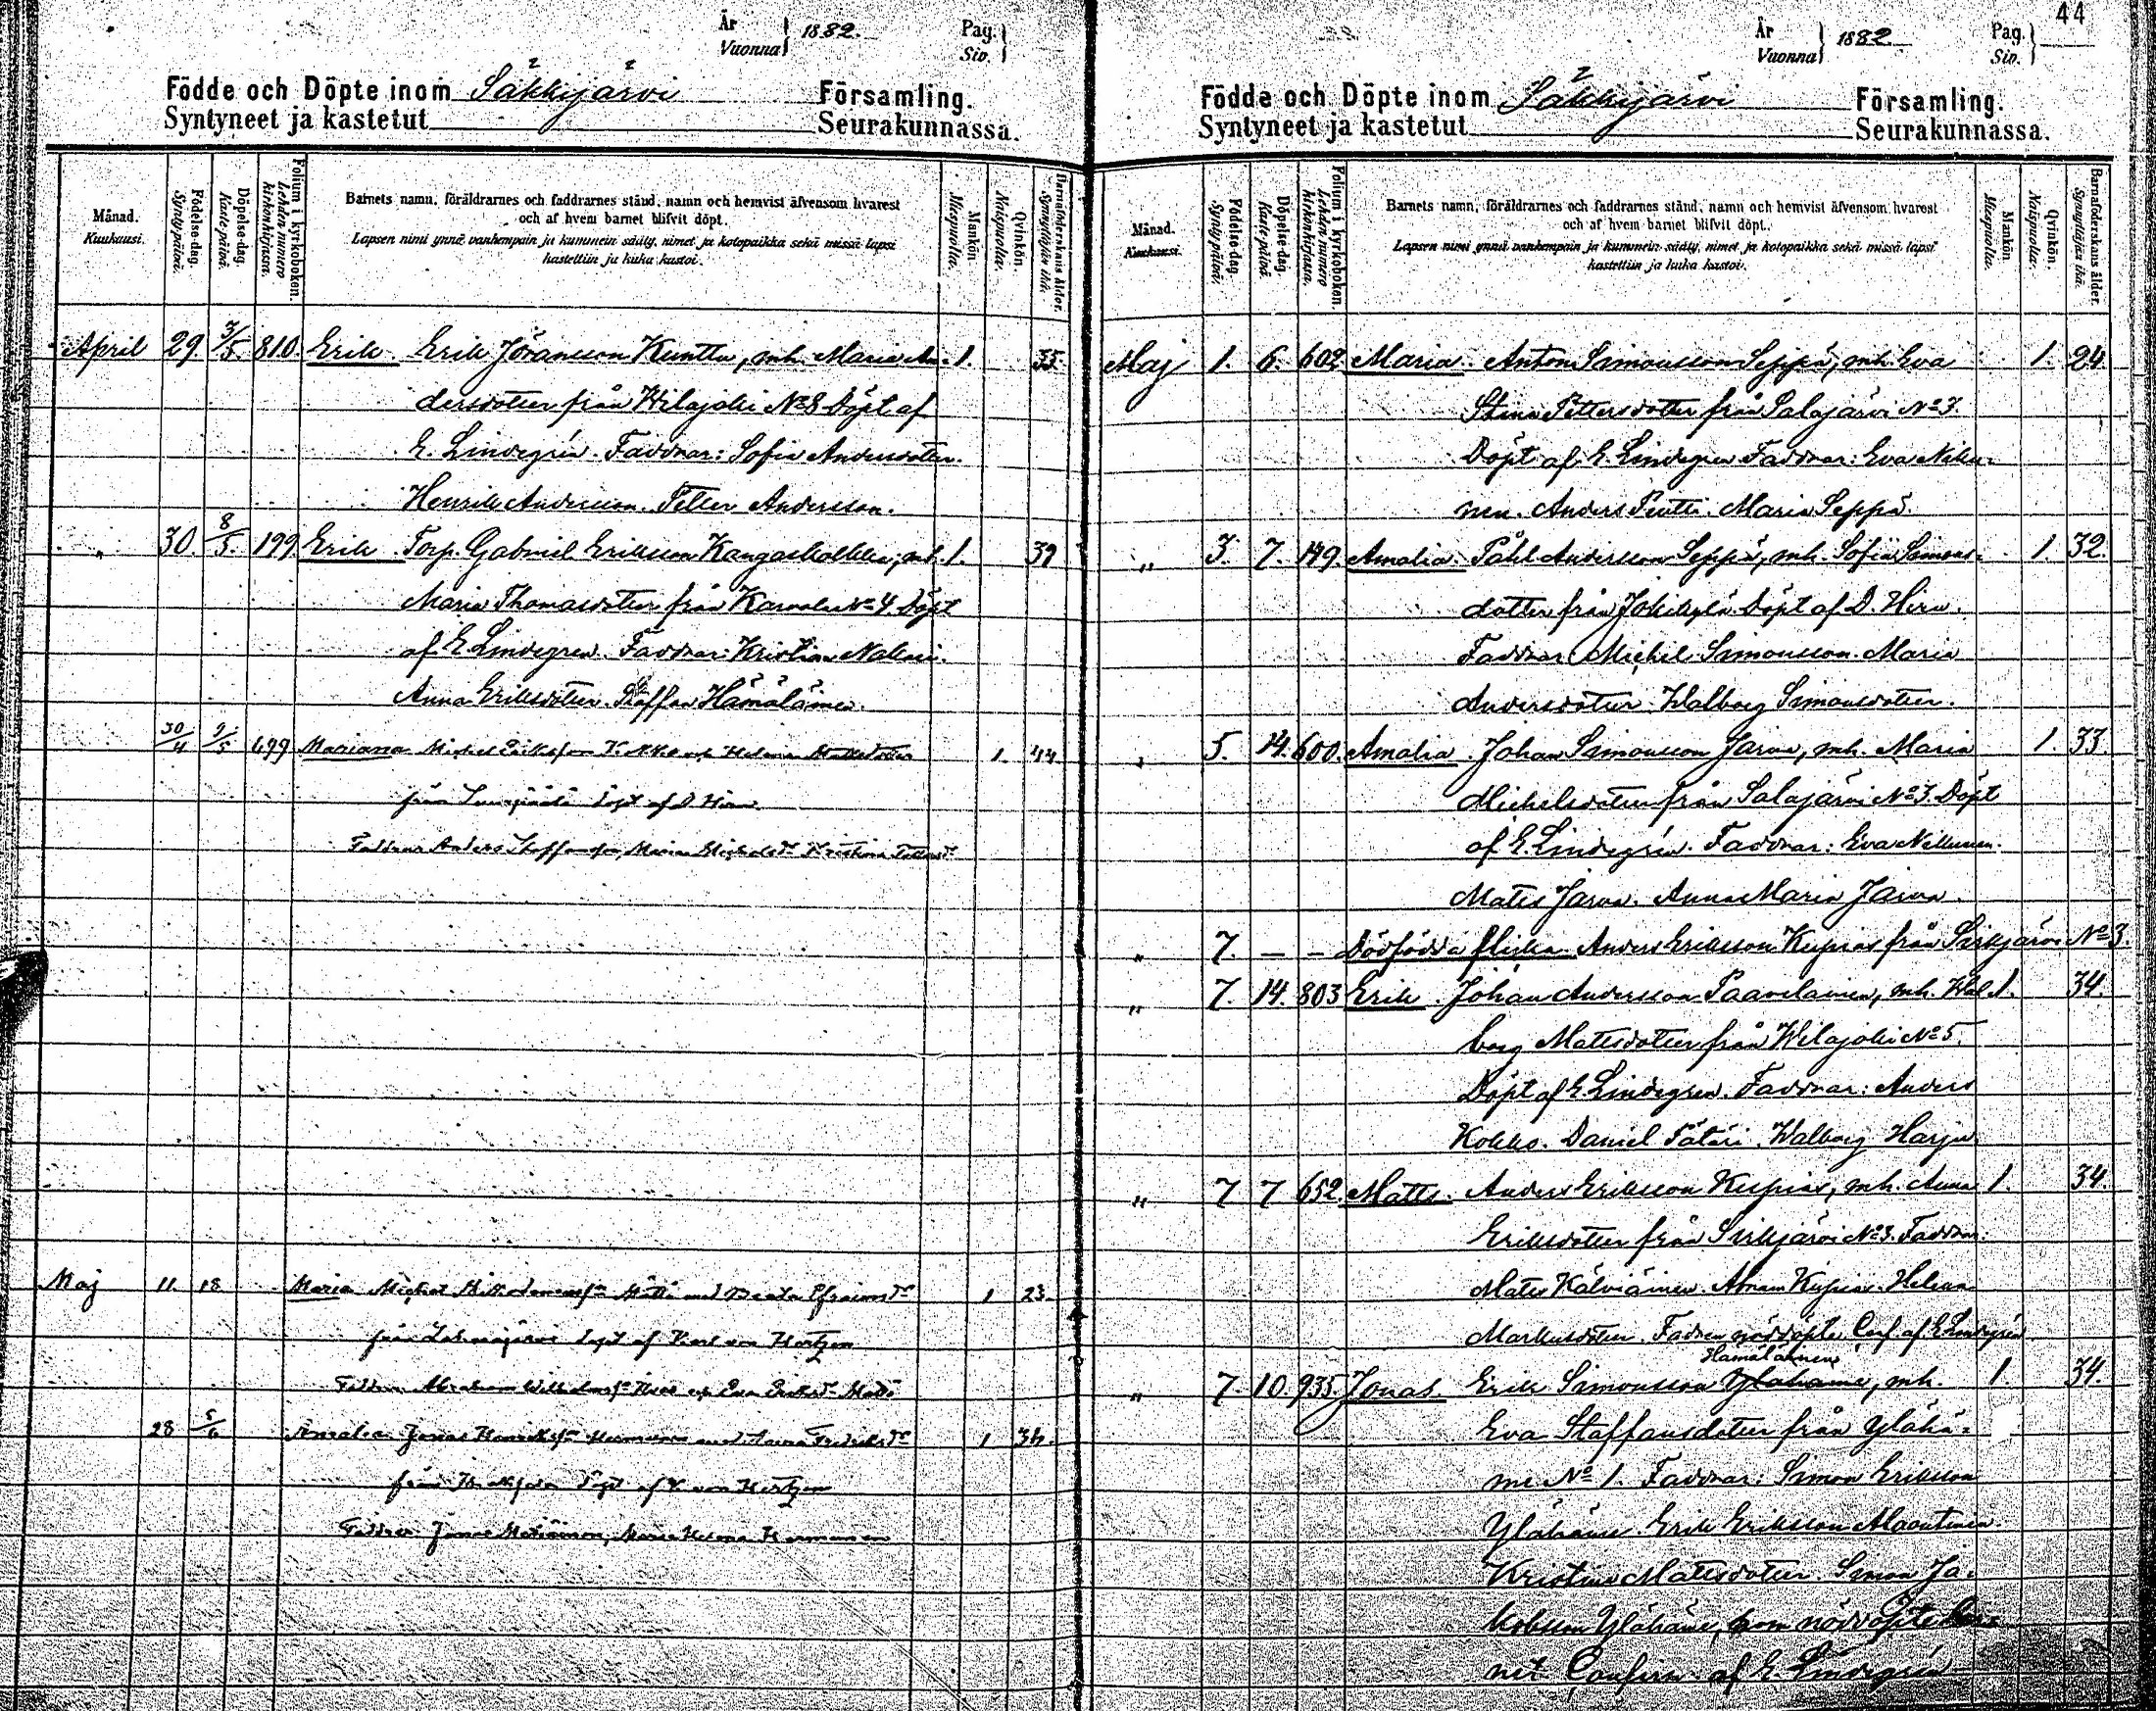 År
Vuonna } 1882. Pag.
Siv. }
Födde och Döpte inom Säkkijärvi Församling.
Syntyneet ja kastetut Seurakunnassa.
Månad. Kuukausi.
Födelse-dag. Synty-päivä.
Döpelse-dag. Kaste-päivä.
Folium i kyrkoboken. Lehden numero kirkonkirjassa.
Barnets namn, föräldrarnes och faddrarnes stånd, namn och hemvist äfvensom hvarest
och af hvem barnet blifvit döpt.
Lapsen nimi ynnä vanhempain ja kummein sääty, nimet ja kotopaikka sekä missä lapsi
kastettiin ja kuka kastoi.
Mankön. Miespuolia.
Qvinkön. Naispuolia.
Barnaföderskans ålder. Synnyttäjän ikä.
April 29. 3/5. 810. Erik. Erik Jöransson Kunttu, mh. Maria An- 1. 35.
dersdotter från Wilajoki No 8 Döpt af
E. Lindegrén. Faddrar: Sofia Andersdotter.
Henrik Andersson. Petter Andersson.
" 30. 8/5. 199 Erik. Torp. Gabriel Eriksson Kangaskolkka, mh. 1. 39
Maria Thomasdotter från No 4. Döpt
af E. Lindegren. Faddrar: Kristian
Anna Eriksdotter. Staffan Hämäläinen.
30/4 9/5 499 Mariana Michel Eriksson mh Helena 1. 44
från döpt af D Hirn
Faddrar Anders Staffansson, Maria Michelsdr Kristina
Maj 11. 18 Maria Michel Mättö med Beata Efraimsdr 1 23.
från döpt af Karl von Hertzen
Faddrar Abraham Eva Mättö
28 5/6 Amalia Jonas Henriksson med Anna Fredriksdr 1 34.
från döpt af K von Hertzen
Faddrar Maria Helena
44
År
Vuonna } 1882. Pag.
Siv. }
Födde och Döpte inom Säkkijärvi Församling.
Syntyneet ja kastetut Seurakunnassa.
Månad. Kuukausi.
Födelse-dag. Synty-päivä.
Döpelse-dag. Kaste-päivä.
Folium i kyrkoboken. Lehden numero kirkonkirjassa.
Barnets namn, föräldrarnes och faddrarnes stånd, namn och hemvist äfvensom hvarest
och af hvem barnet blifvit döpt.
Lapsen nimi ynnä vanhempain ja kummein sääty, nimet ja kotopaikka sekä missä lapsi
kastettiin ja kuka kastoi.
Mankön. Miespuolia.
Qvinkön. Naispuolia.
Barnaföderskans ålder. Synnyttäjän ikä.
Maj 1. 6. 602. Maria. Anton Simonsson Seppä, mh. Eva 1. 24.
Stina Pettersdotter från Salajärvi No 3.
Döpt af E. Lindegren Faddrar: Eva Niku-
nen. Anders Pentti. Maria Seppä.
" 3. 7. 149. Amalia. Påhl Andersson Seppä, mh. Sofia Simons- 1. 32.
dotter från Jokikylä Döpt af D. Hirn.
Faddrar Michel Simonsson. Maria
Andersdotter. Walborg Simonsdotter.
" 5. 14. 600. Amalia. Johan Simonsson Jarva, mh. Maria 1. 33.
Michelsdotter från Salajärvi No 3. Döpt
af E. Lindegrén. Faddrar: Eva
Mats Jarva. Anna Maria Jarva.
" 7. – – Dödfödda flicka Anders Eriksson Kupias från Sirkjärvi No 3.
" 7. 14. 803 Erik. Johan Andersson Paavilainen, mh. Wal- 1. 34.
borg Matsdotter från Wilajoki No 5.
Döpt af E. Lindegren. Faddrar: Anders
Kokko. Daniel Pätäri. Walborg Harju
" 7 7 652. Matts. Anders Eriksson Kupias, mh. Anna 1. 34.
Eriksdotter från Sirkjärvi No 3. Faddrar:
Mats Kälviäinen. Abram Kupias. Helena
Markusdotter. Fadren nöddöpte Conf. af E. Lindegrén
Hämäläinen
" 7. 10. 935. Jonas Erik Simonsson Ylähänne, mh. 1. 34.
Eva Staffansdotter från Ylähä-
ne No 1. Faddrar: Simon Eriksson
Ylähäne. Erik Eriksson
Kristina Matsdotter. Simon Ja-
kobsson Ylähäne, som nöddöpte bar-
net. Confirm. af E. Lindegrén